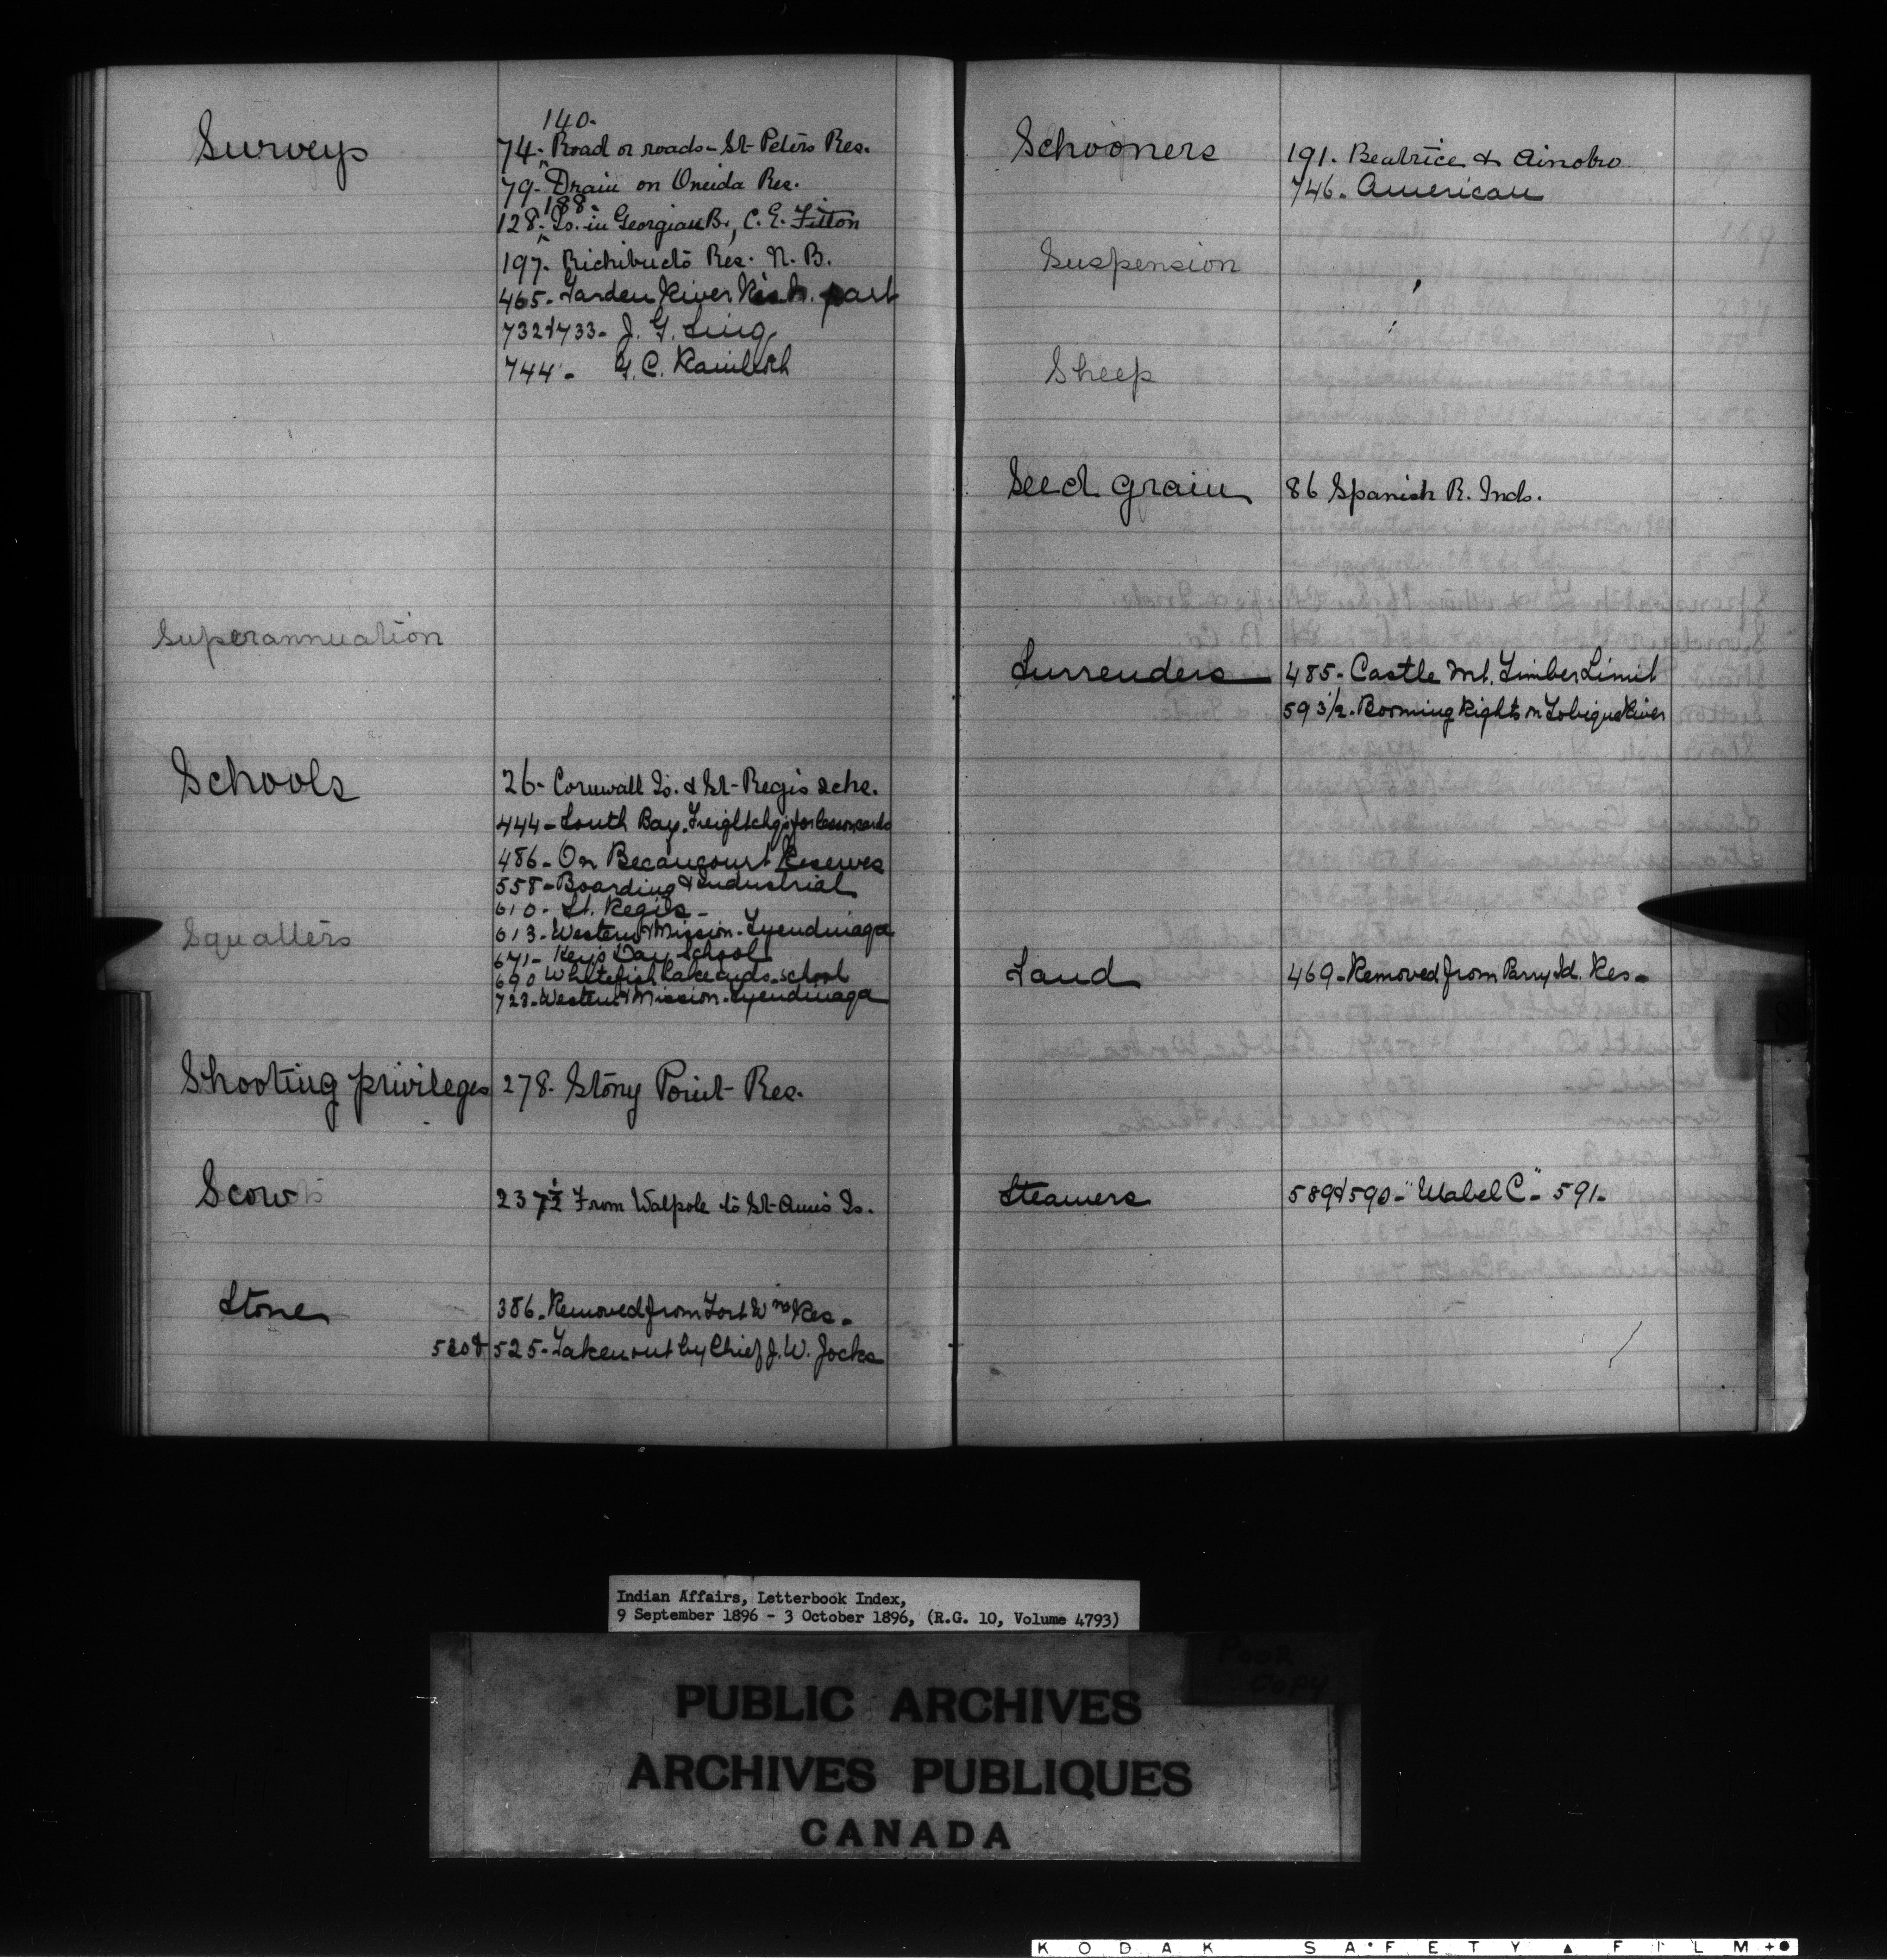 Surveys
140.
74. Road or roads - St. Peters Res.
79. Drain on Oneida Res.
188.
128. Is. in Georgian B., C. E. Fitton
197. Richibucto Res. N. B.
465. Garden River Res. part
732 & 733. J. G. Sing
744. G. C. Rainboth
Superannuation
Schools
26. Cornwall Is. & St. Regis schs.
444 - South Bay. Freight chgs for
486 - On Becancourt Reserves
558 - Boarding & Industrial
610 - St. Regis -
613 - Western & Mission - Tyendinaga
671 - Key's Day School
690 Whitefish Lake school
728 - Western & Mission - Tyendinaga
Squatters
Shooting privileges
278. Stony Point Res.
Scow
237½ From Walpole to St. Anne's Is.
Stone
386. Removed from Fort Wm Res.
520 & 525 - Taken out by Chief J. W. Jocks
Schooners
191. Beatrice & Ainobro
746. American
Suspension
Sheep
Seed grain
86 Spanish R. Inds.
Surrenders
485 - Castle Mt. Timber Limit
593½ - Booming Rights on Tobique River
Sand
469 - Removed from Parry Id. Res -
Steamers
589 & 590 - "Mabel C" - 591 -
Indian Affairs, Letterbook Index,
9 September 1896 - 3 October 1896, (R.G. 10, Volume 4793)
POOR
COPY
PUBLIC ARCHIVES
ARCHIVES PUBLIQUES
CANADA
KODAK SAFETY ▲ FILM +●